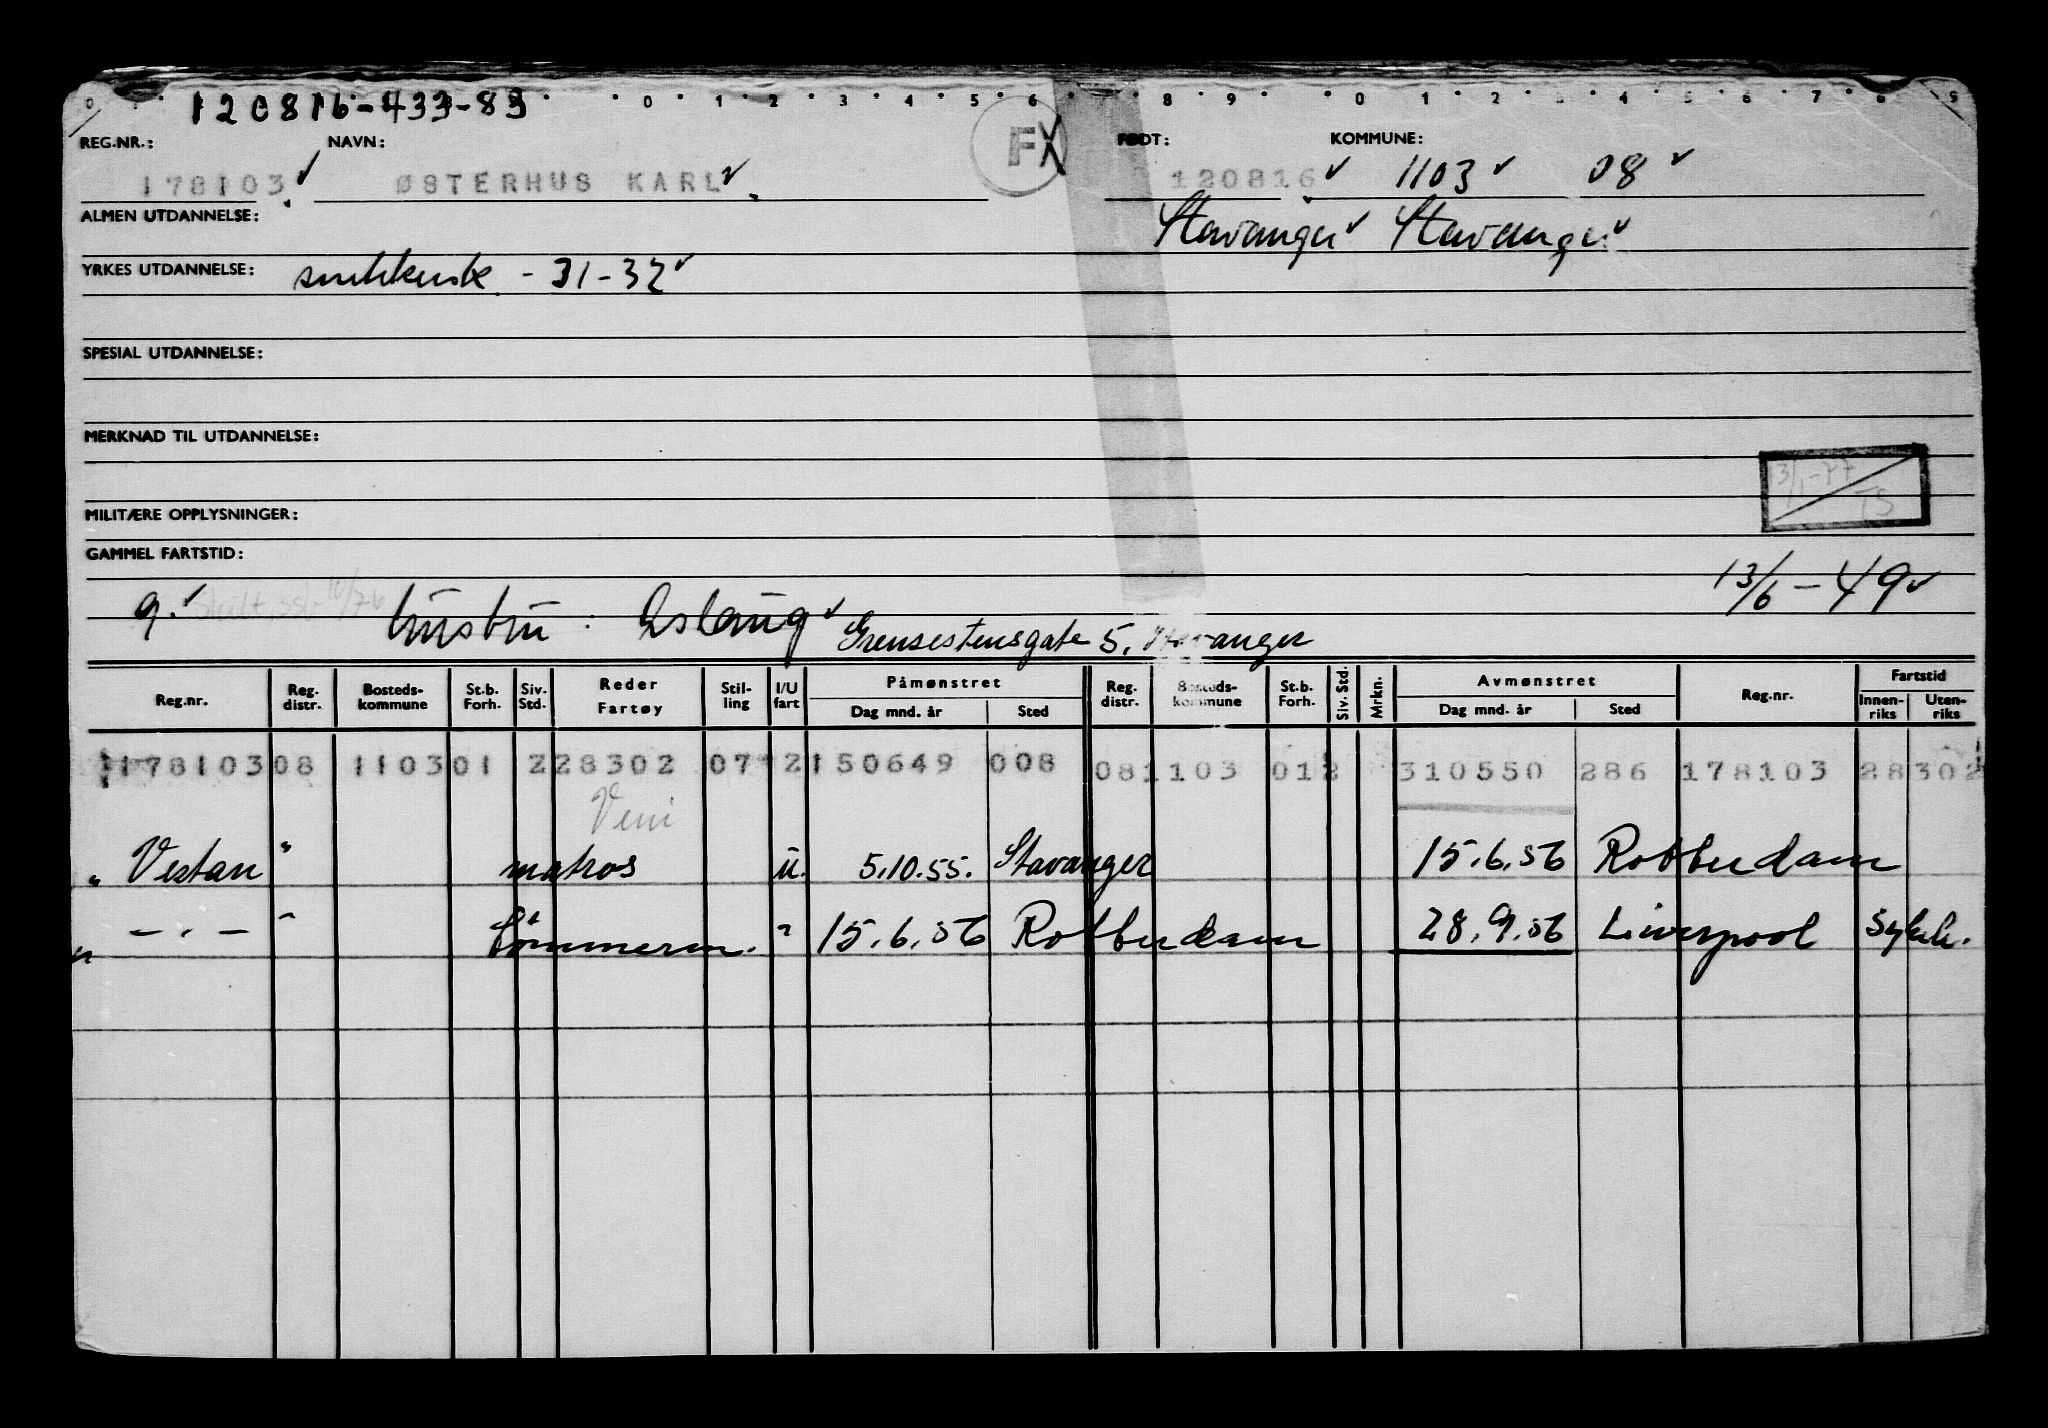 120816-433-83
0 1 2 3 4 5 6 8 9 0 1 2 3 4 5 6 7 8 9
REG.NR.: NAVN: FX FØDT: KOMMUNE:
178103 ØSTERHUS KARL 120816 1103 08
ALMEN UTDANNELSE: Stavanger Stavanger
YRKES UTDANNELSE: - 31-32
SPESIAL UTDANNELSE:
MERKNAD TIL UTDANNELSE:
3/1-77 TS
MILITÆRE OPPLYSNINGER:
GAMMEL FARTSTID:
g. 10/76 hustru: Aslaug 13/6-49
Grensestensgate 5, Stavanger
Reg.nr. Reg. distr. Bosteds-kommune St.b. Forh. Siv. Std. Reder Fartøy Stil-ling I/U fart Påmønstret Dag mnd. år Sted Reg. distr. Bosteds-kommune St.b. Forh. Siv. Std. Mrkn. Avmønstret Dag mnd. år Sted Reg.nr. Fartstid Innen-riks Uten-riks
178103 08 1103 01 2 28302 07 2 150649 008 08 1103 01 2 310550 286 178103 28302
Veni
" Vestan " matros u. 5.10.55. Stavanger 15.6.56 Rotterdam
" - " - " tömmerm. " 15.6.56 Rotterdam 28.9.56 Liverpool Sykeh.